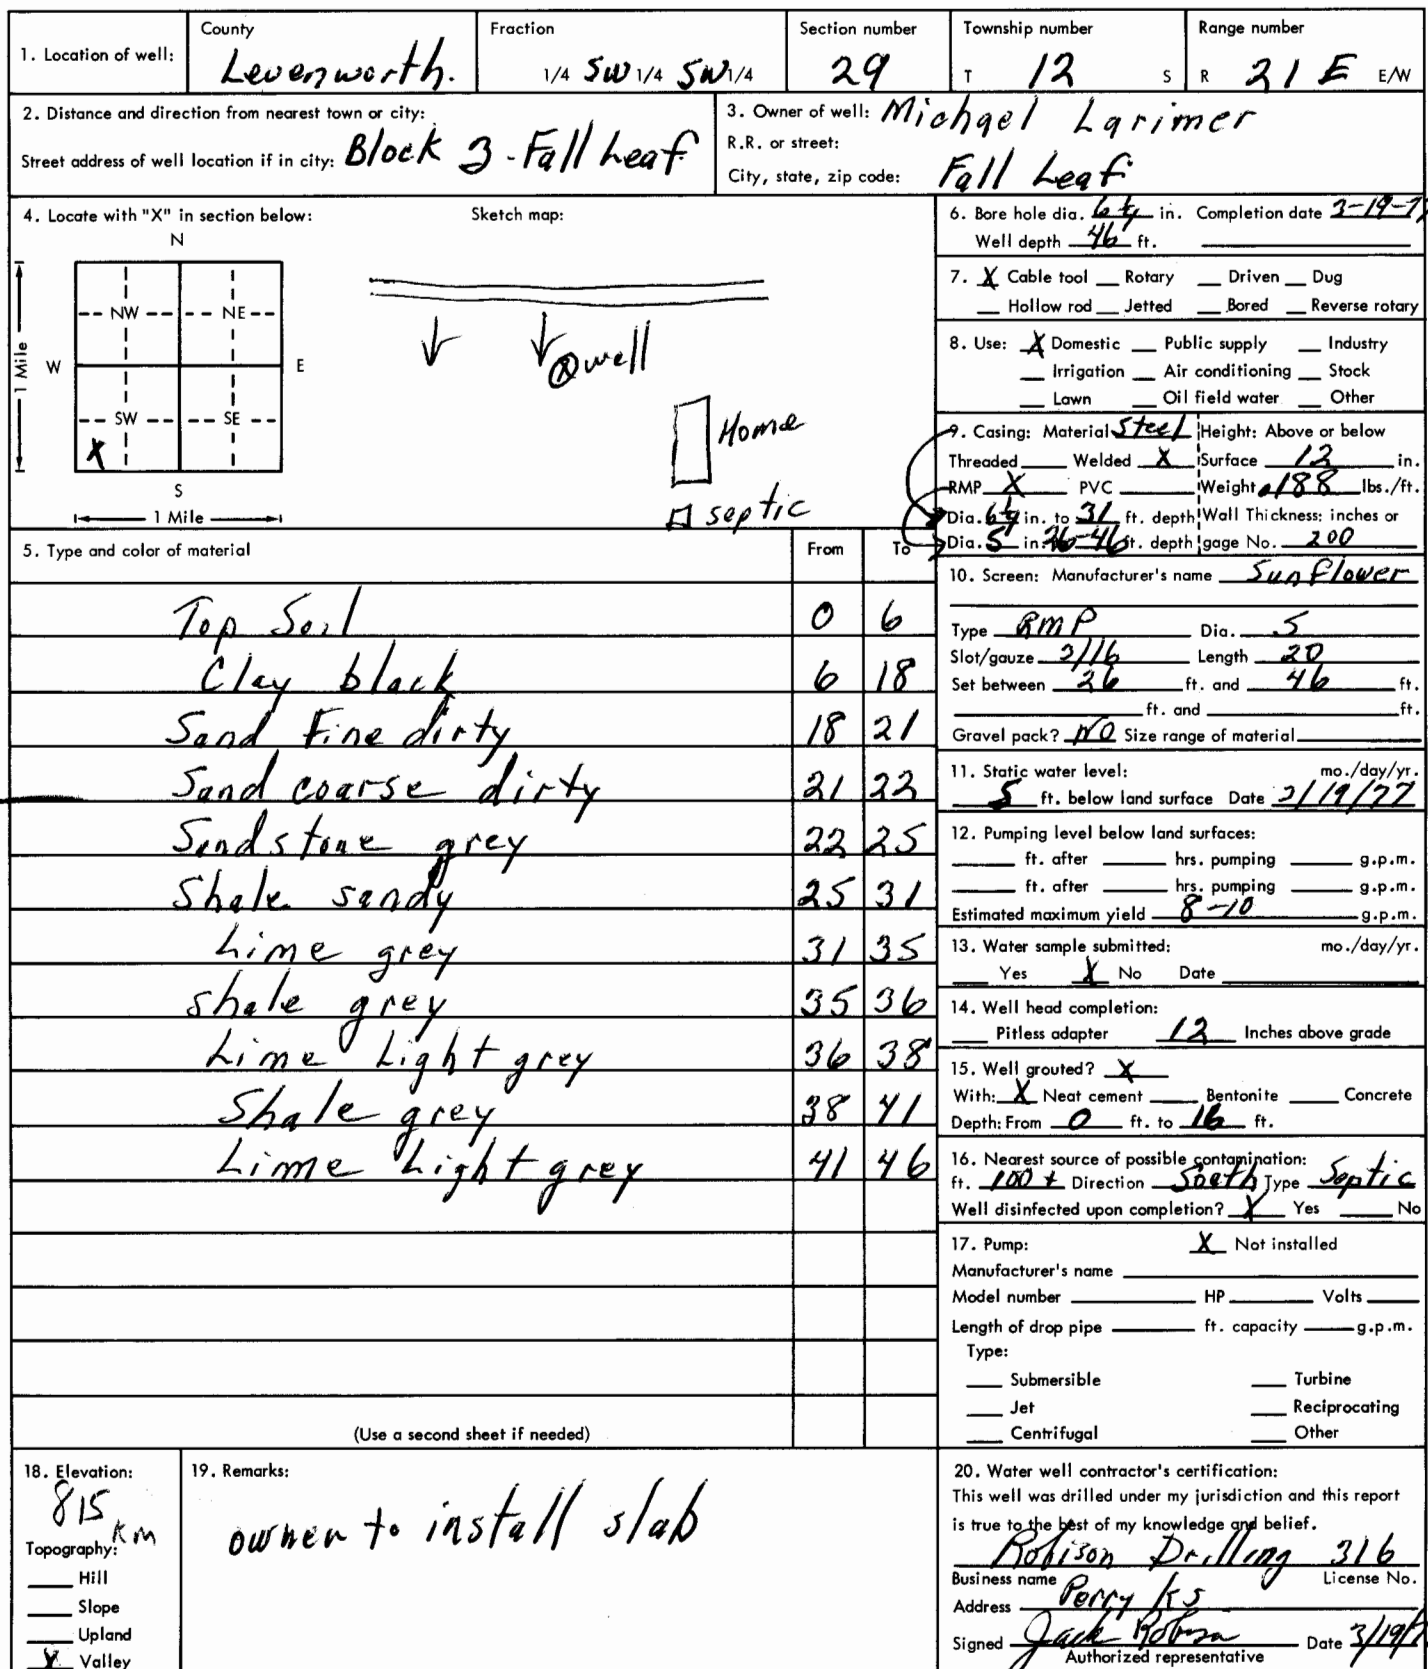 1. Location of well:
County
Levenworth.
Fraction
1/4 SW 1/4 SW 1/4
Section number
29
Township number
T 12 S
Range number
R 21 E E/W
2. Distance and direction from nearest town or city:
Street address of well location if in city: Block 3 - Fall Leaf
3. Owner of well: Michael Larimer
R.R. or street:
City, state, zip code: Fall Leaf
4. Locate with "X" in section below:
Sketch map:
N
NW NE
W E
1 Mile
SW SE
X
S
1 Mile
⊗ well
Home
septic
5. Type and color of material From To
Top Soil 0 6
Clay black 6 18
Sand Fine dirty 18 21
Sand coarse dirty 21 22
Sandstone grey 22 25
Shale sandy 25 31
Lime grey 31 35
Shale grey 35 36
Lime Light grey 36 38
Shale grey 38 41
Lime Light grey 41 46
(Use a second sheet if needed)
6. Bore hole dia. in. Completion date 3-19-7
Well depth 46 ft.
7. X Cable tool Rotary Driven Dug
Hollow rod Jetted Bored Reverse rotary
8. Use: X Domestic Public supply Industry
Irrigation Air conditioning Stock
Lawn Oil field water Other
9. Casing: Material Steel Height: Above or below
Threaded Welded X Surface 12 in.
RMP X PVC Weight .188 lbs./ft.
Dia. in. to 31 ft. depth Wall Thickness: inches or
Dia. 5 in. 26-46 ft. depth gage No. 200
10. Screen: Manufacturer's name Sunflower
Type RMP Dia. 5
Slot/gauze 3/16 Length 20
Set between 26 ft. and 46 ft.
ft. and ft.
Gravel pack? NO Size range of material
11. Static water level: mo./day/yr.
5 ft. below land surface Date 3/19/77
12. Pumping level below land surfaces:
ft. after hrs. pumping g.p.m.
ft. after hrs. pumping g.p.m.
Estimated maximum yield 8-10 g.p.m.
13. Water sample submitted: mo./day/yr.
Yes X No Date
14. Well head completion:
Pitless adapter 12 Inches above grade
15. Well grouted? X
With: X Neat cement Bentonite Concrete
Depth: From 0 ft. to 16 ft.
16. Nearest source of possible contamination:
ft. 100 + Direction South Type Septic
Well disinfected upon completion? X Yes No
17. Pump: X Not installed
Manufacturer's name
Model number HP Volts
Length of drop pipe ft. capacity g.p.m.
Type:
Submersible Turbine
Jet Reciprocating
Centrifugal Other
18. Elevation:
815
KM
Topography:
Hill
Slope
Upland
X Valley
19. Remarks:
owner to install slab
20. Water well contractor's certification:
This well was drilled under my jurisdiction and this report
is true to the best of my knowledge and belief.
Robison Drilling 316
Business name License No.
Address Perry KS
Signed Jack Robison Date 3/19/7
Authorized representative